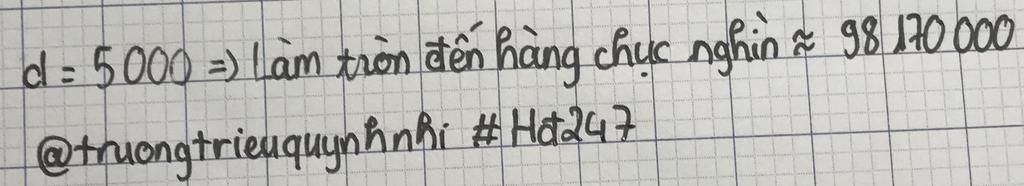 d = 5000 => làm tròn đến hàng chục nghìn ≈ 98 170 000
@truongtrieuquynhnhi #Hd247